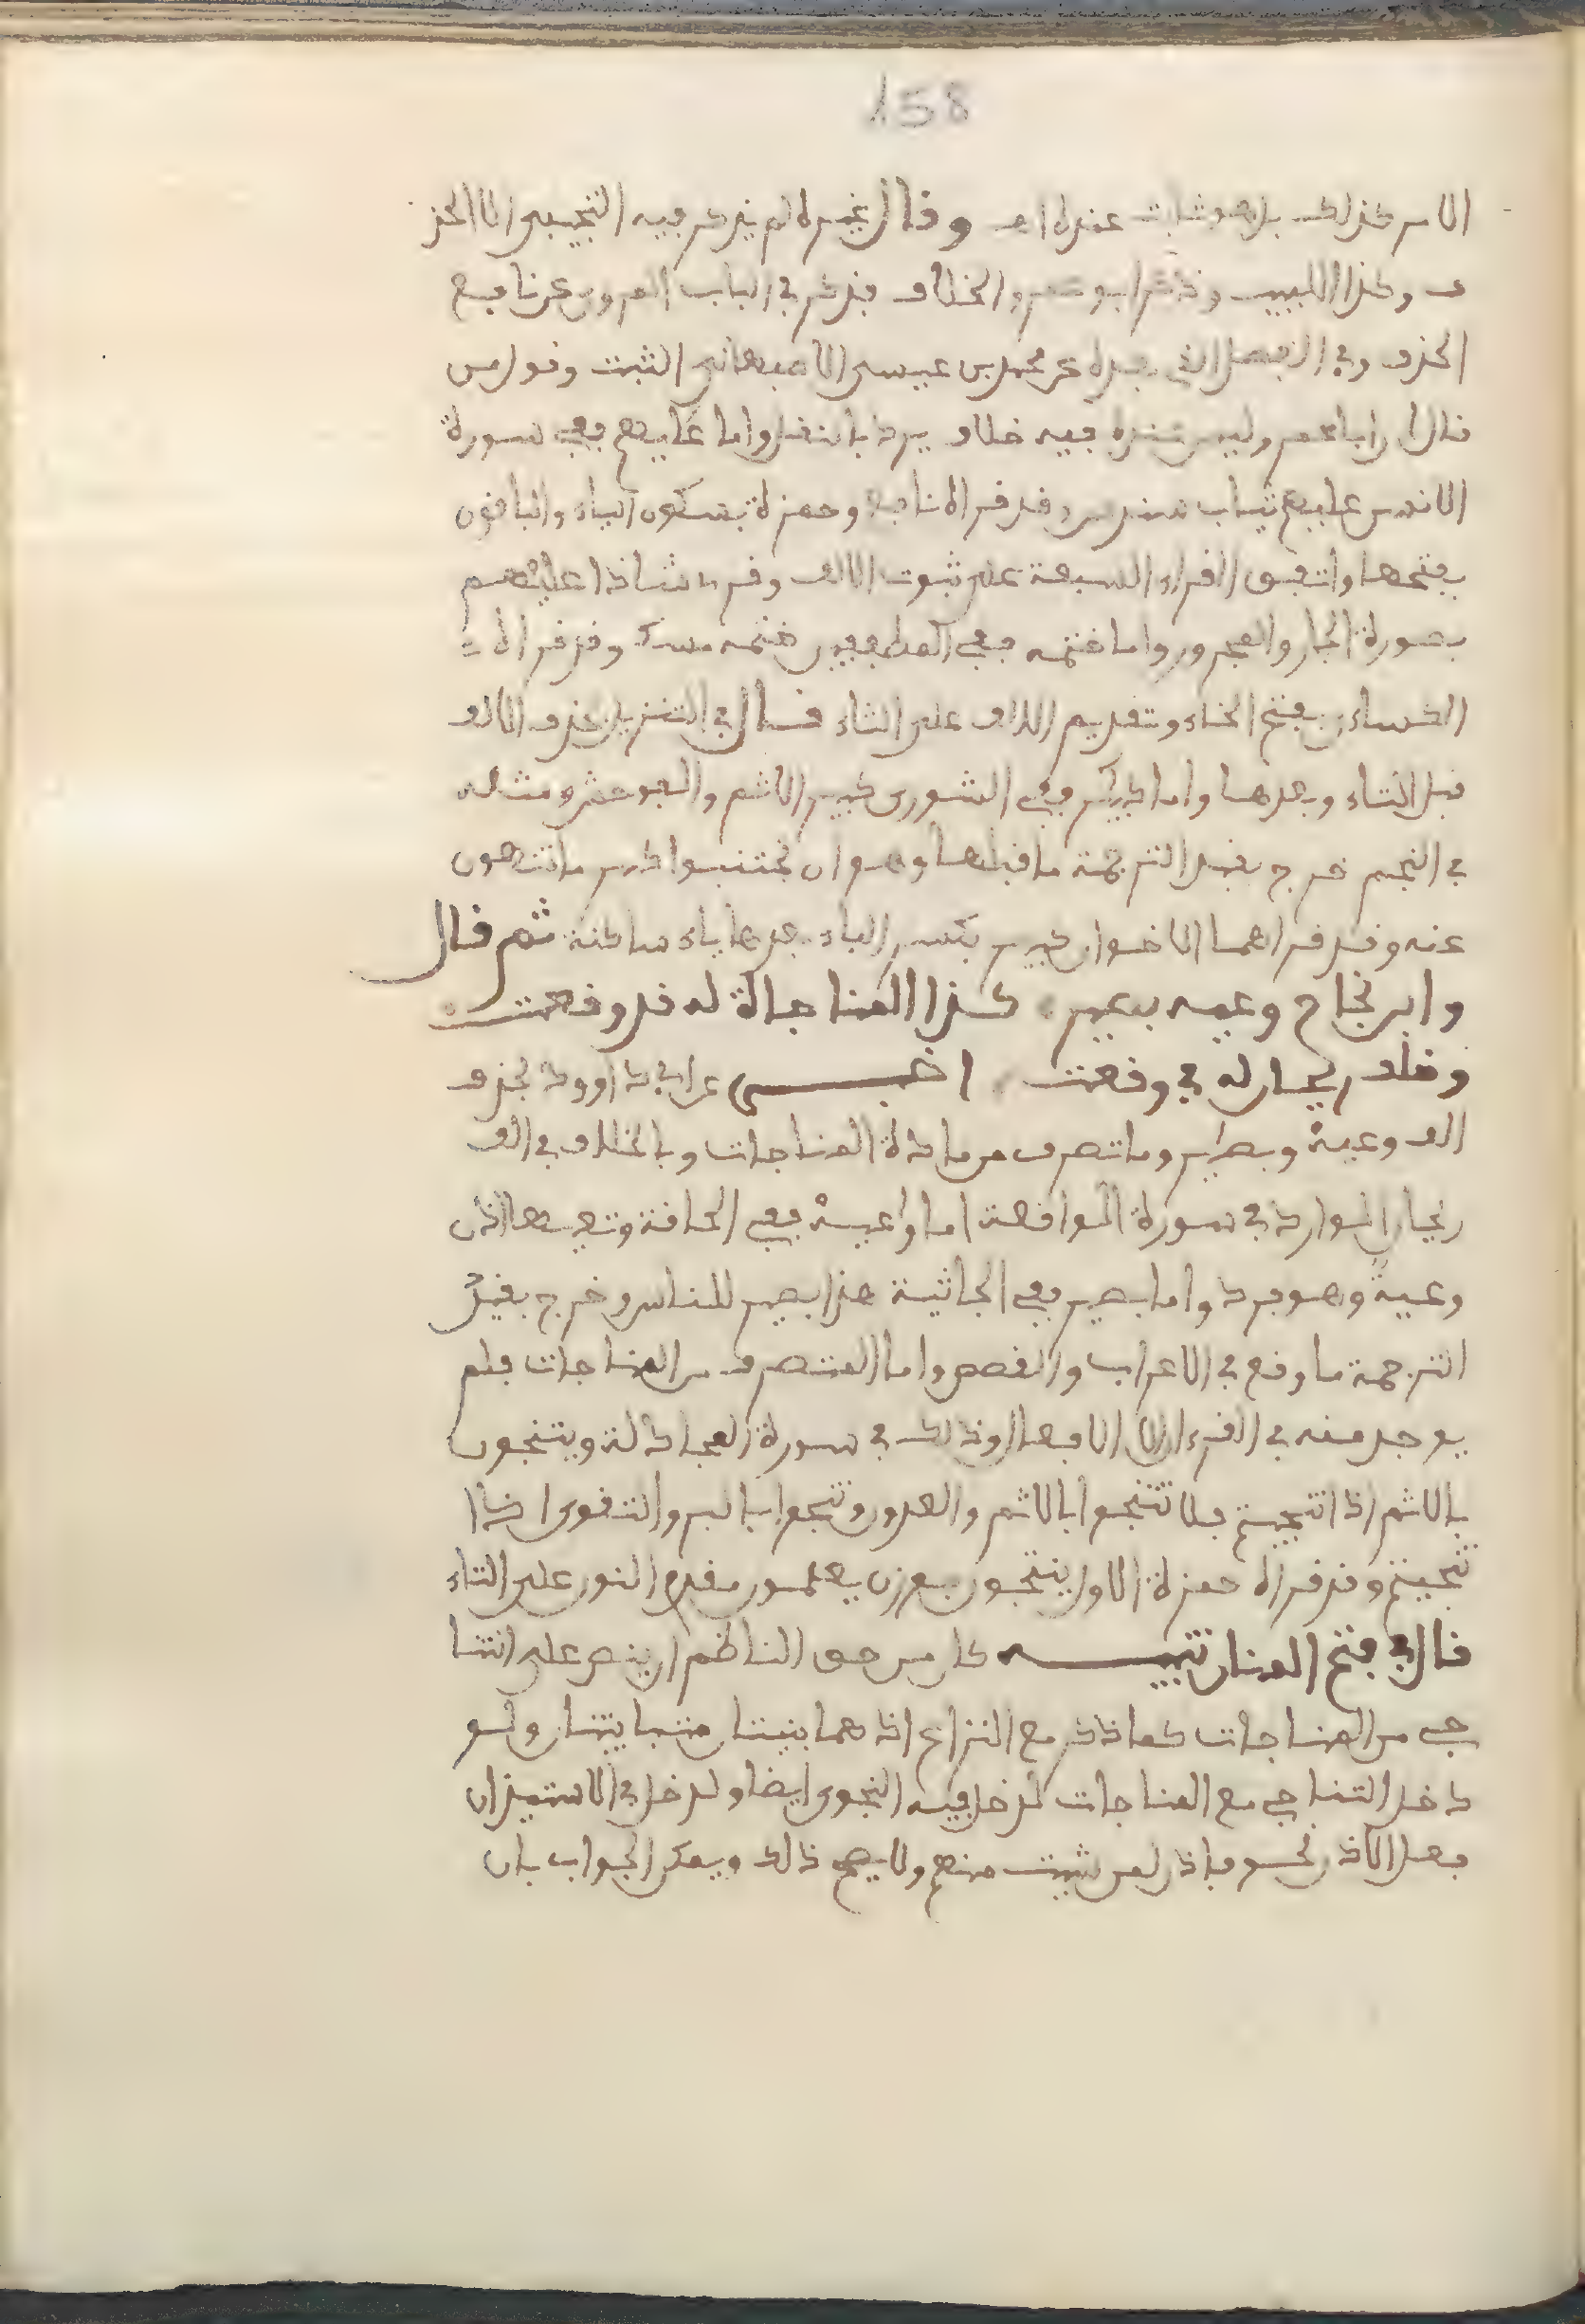 158
الامر كذلك بل هو ثابت عنده اهـ وقال غيره لم يذكر فيه التجيبي الا الحذ
ف وكذا اللبيب وذكر ابو عمرو الخلاف فذكر في الباب المروي عن نافع
الحذف وفي الفصل الذي بعده عن محمد بن عيسى الاصبهاني الثبت وقول من
قال ان ابا عمرو ليس عنده فيه خلاف يرد بالنقل واما عاليهم ففي سورة
الانس عاليهم ثياب سندس وقد قراه نافع وحمزة بسكون الياء والباقون
بفتحها واتفق القراء السبعة على ثبوت الالف وقرئ شاذا عليهم
بصورة الجار والمجرور واما ختمه ففي المطففين ختمه مسك وقد قراه
الكسائي بفتح الخاء وتقديم الالف على التاء قال في التنزيل بحذف الالف
قبل التاء وبعدها واما كبير ففي الشورى كبير الاثم والفوحش ومثله
في النجم خرج بقيد الترجمة ما قبلها وهو ان تجتنبوا كبير ما تنهون
عنه وقد قراهما الاخوان كبير بكسر الباء بعدها ياء ساكنة ثم قال
وابن نجاح وعيه بصير كذا المناجاة له قد وقعت
وخلف ريحان له في وقعت اخبر عن ابي داوود بحذف
الف وعية وبصير وما تصرف من مادة المناجات وبالخلاف في الف
ريحان الوارد في سورة الواقعة اما وعية ففي الحاقة وتعيها اذن
وعية وهو فرد واما بصير ففي الجاثية هذا بصير للناس وخرج بقيد
الترجمة ما وقع في الاعراب والقصص واما المتصرف من المناجات فلم
يوجد منه في القرءان الا افعال وذلك في سورة المجادلة ويتنجون
بالاثم اذا تنجيتم فلا تتنجوا بالاثم والعدون وتنجوا بالبر والتقوى اذا
نجيتم وقد قراه حمزة الاول ينتجون بوزن يفتعلون بتقديم النون على التاء
قال في فتح المنان تنبيه كان من حق الناظم ان ينص على التنا
جي من المناجات كما ذكر مع التنزاع اذ هما بنيتان متباينتان ولو
دخل التناجي مع المناجات لدخل فيه النجوى ايضا ولدخل في الاستيذان
فعل الاذن نحو فاذن لمن شيت منهم ولا يصح ذلك ويمكن الجواب بان